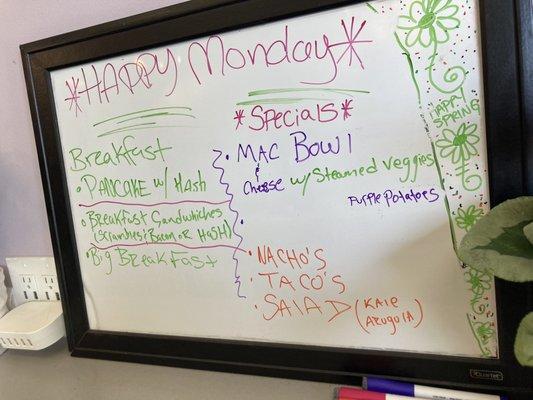 *HAPPY Monday*
Breakfast
• PANCAKE w/ HASH
• Breakfast Sandwiches
(Scrambes + Bacon, or HASH)
• Big BreakFast
*SPecials*
• MAC BOWl
& cheese w/ Steamed Veggies
Purple Potatoes
• NACHO'S
• TACO'S
• SAlAD (KAle
ARugulA)
HAPPY
SPRING